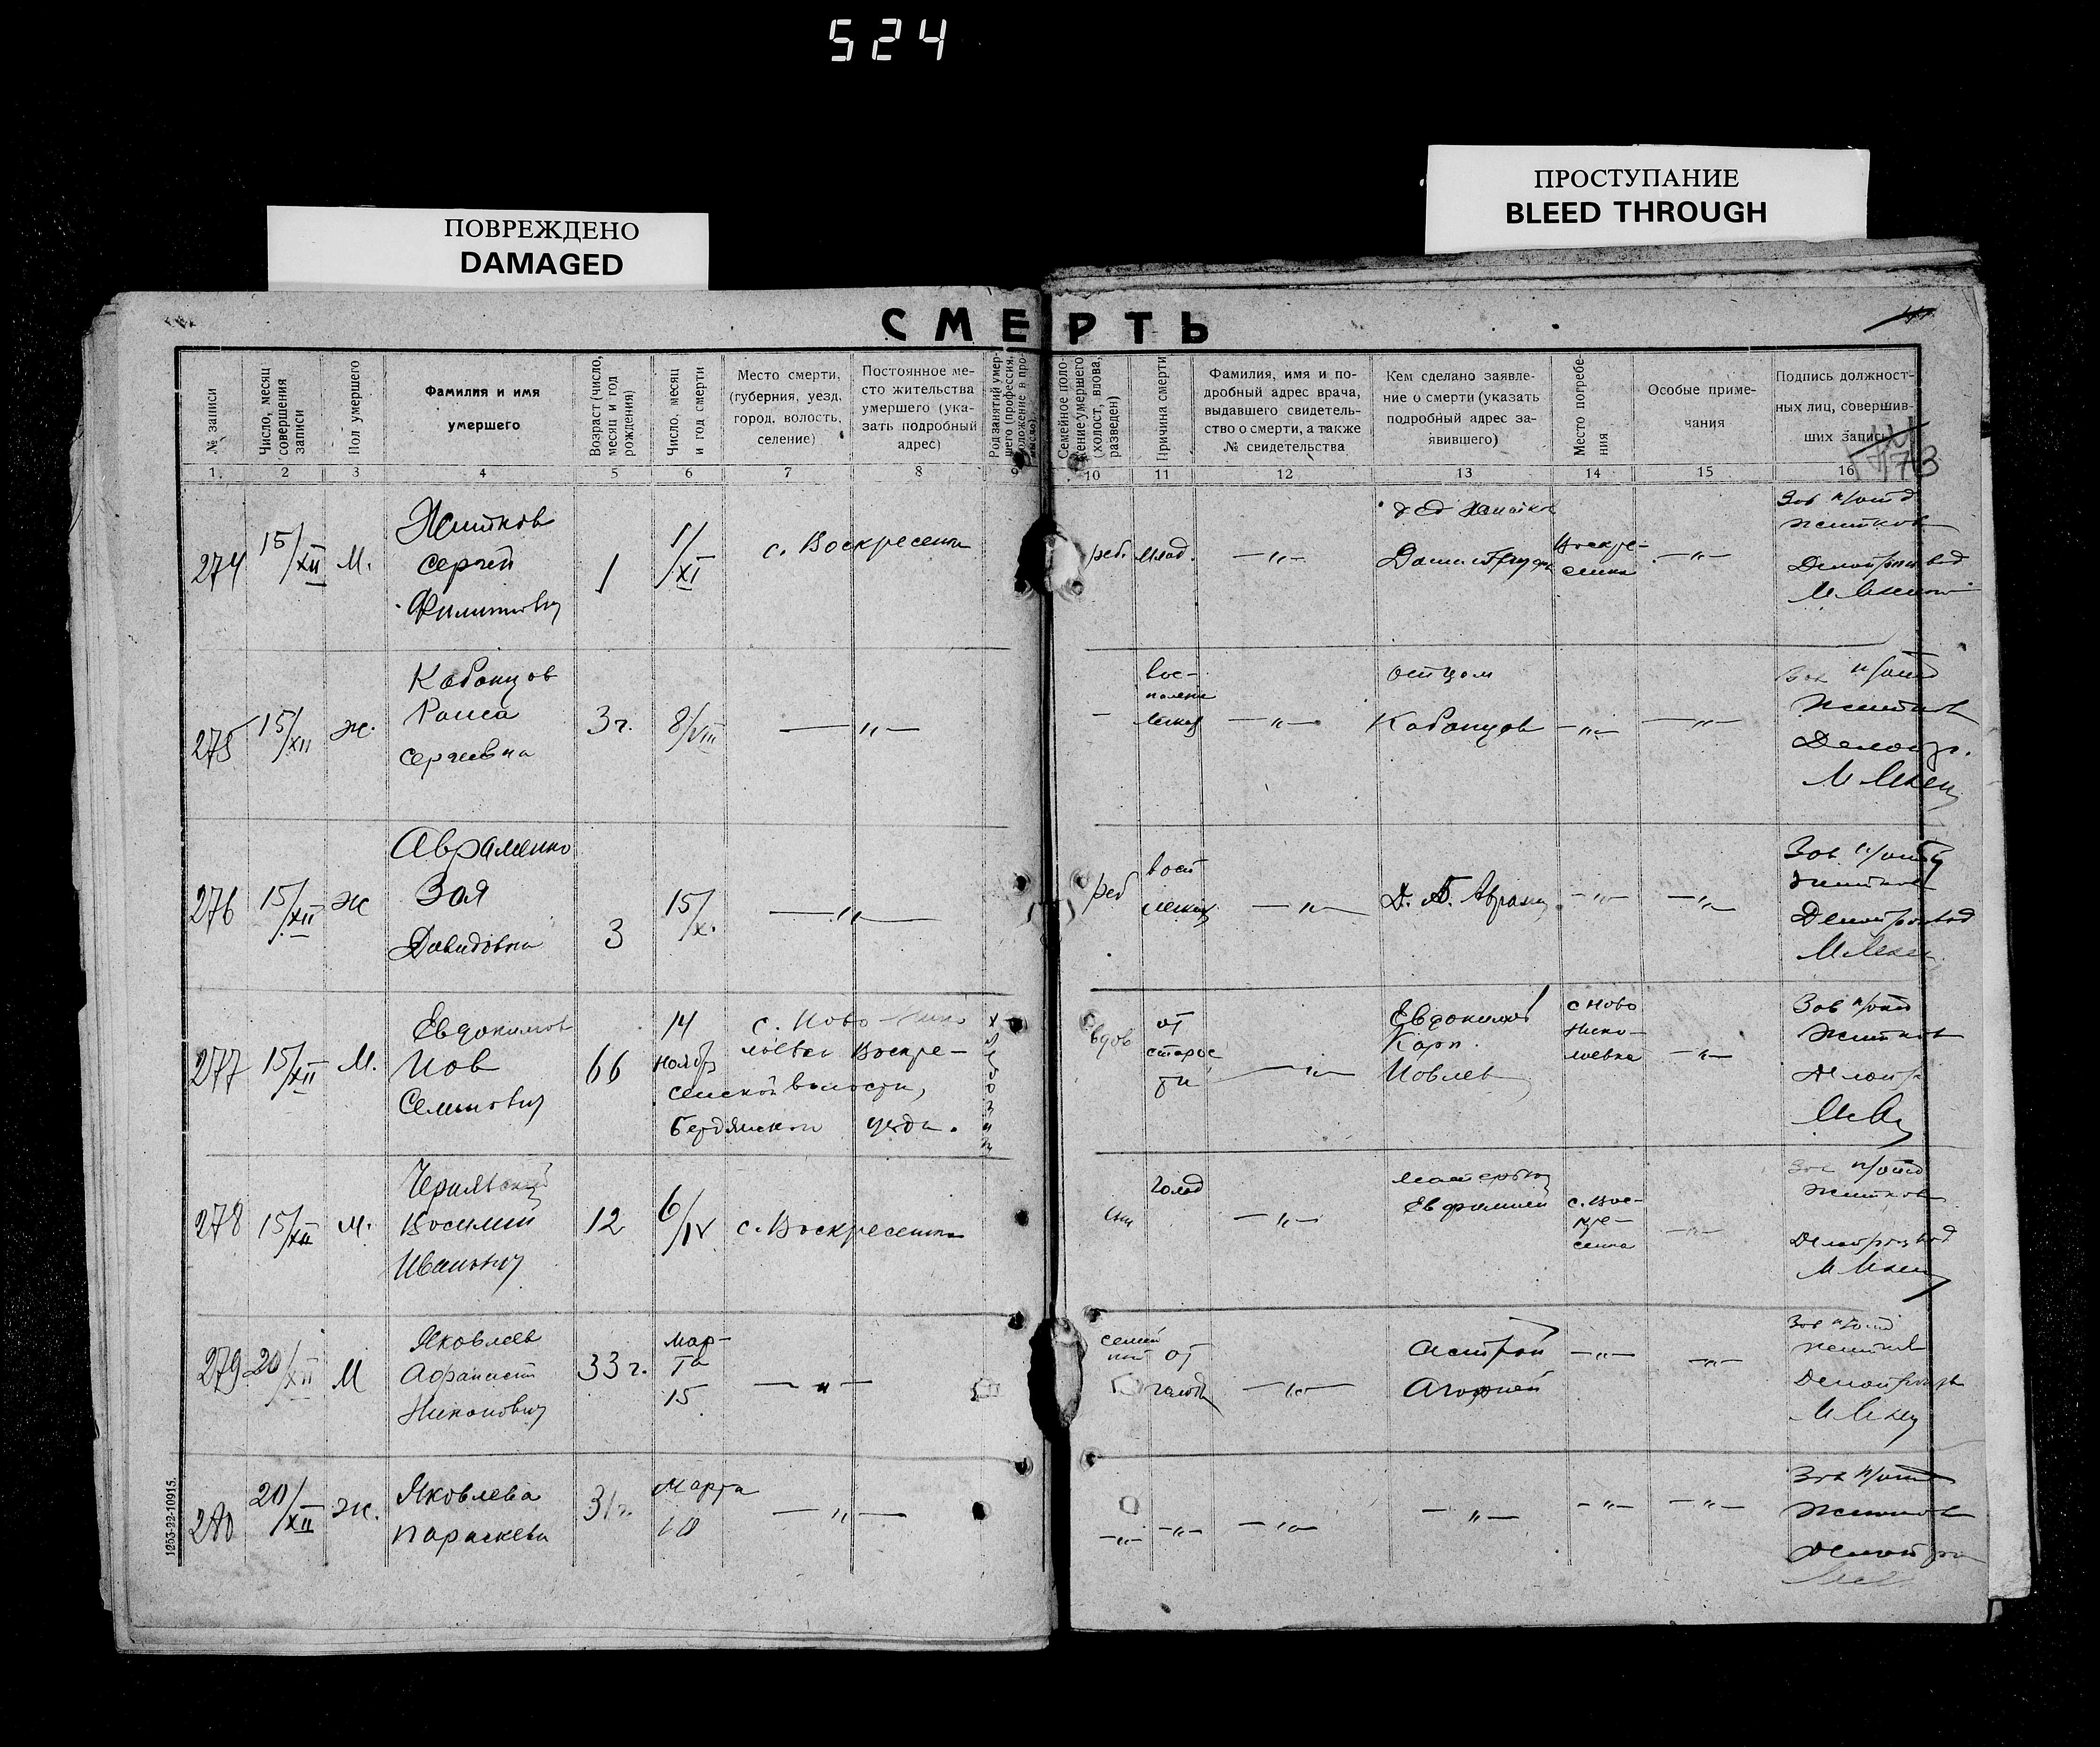 524
ПРОСТУПАНИЕ
BLEED THROUGH
ПОВРЕЖДЕНО
DAMAGED
СМЕРТЬ
№ записи
Число, месяц совершения записи
Пол умершего
Фамилия и имя
умершего
Возраст (число, месяц и год рождения)
Число, месяц и год смерти
Место смерти,
(губерния, уезд,
город, волость,
селение)
Постоянное ме-
сто жительства
умершего (ука-
зать подробный
адрес)
Семейное поло-
жение умершего
(холост, вдова,
разведен)
Причина смерти
Фамилия, имя и по-
дробный адрес врача,
выдавшего свидетель-
ство о смерти, а также
№ свидетельства
Кем сделано заявле-
ние о смерти (указать
подробный адрес за-
явившего)
Место погребе-
ния
Особые приме-
чания
Подпись должност-
ных лиц, совершив-
ших запись
1. 2 3 4 5 6 7 8 9 10 11 12 13 14 15 16
274 15/XII М.
Житков
Сергей
Филиппович
1
1/XI
с. Воскресенка
реб. млад. —„—
дед Житков
Воскре-
сенка
—„—
Зав п/отд
Житков
Делопроизвод
275 15/XII ж.
Кабанцов
Раиса
Сергеевна
3г. 8/VIII —„—
Вос-
пален
легких
—„—
отцом
Кабанцов
—„— —„—
Зав п/отд
Житков
Делопр.
276 15/XII ж
Авраменко
Зоя
Давидовна
3
15/X.
—„—
реб
восп
легких
—„—
—„— —„—
Зав. п/отд
Житков
Делопроизвод
277 15/XII М.
Евдокимов
Иов
Семенович
66
14
ноября
с. Ново-Нико
лаевки Воскре-
сенской волости,
Бердянского уезда.
хлебозан
вдов
от
старос
ти
—„—
Евдокимов
Карп
Иовлев
с Ново
Нико-
лаевка
—„—
Зав п/отд
Житков
Делопр
278 15/XII м.
Василий
Иванович
12 6/IV с. Воскресенка
голод
—„—
матерью
Евфимией
с. Вос-
кре-
сенка
—„—
Зав п/отд
Житков
Делопроизвод
279 20/XII М
Яковлев
Афанасий
Никонович
33г.
мар-
та
15
—„—
семей
ный
от
голода
—„—
сестрой
Агафией
—„— —„—
Зав п/отд
Житков
Делопроизв
280 20/XII ж.
Яковлева
Параскева
31г.
Марта
10
—„—
—„— —„— —„— —„— —„— —„—
Зав п/отд
Житков
Делопро
1253-22-10915.